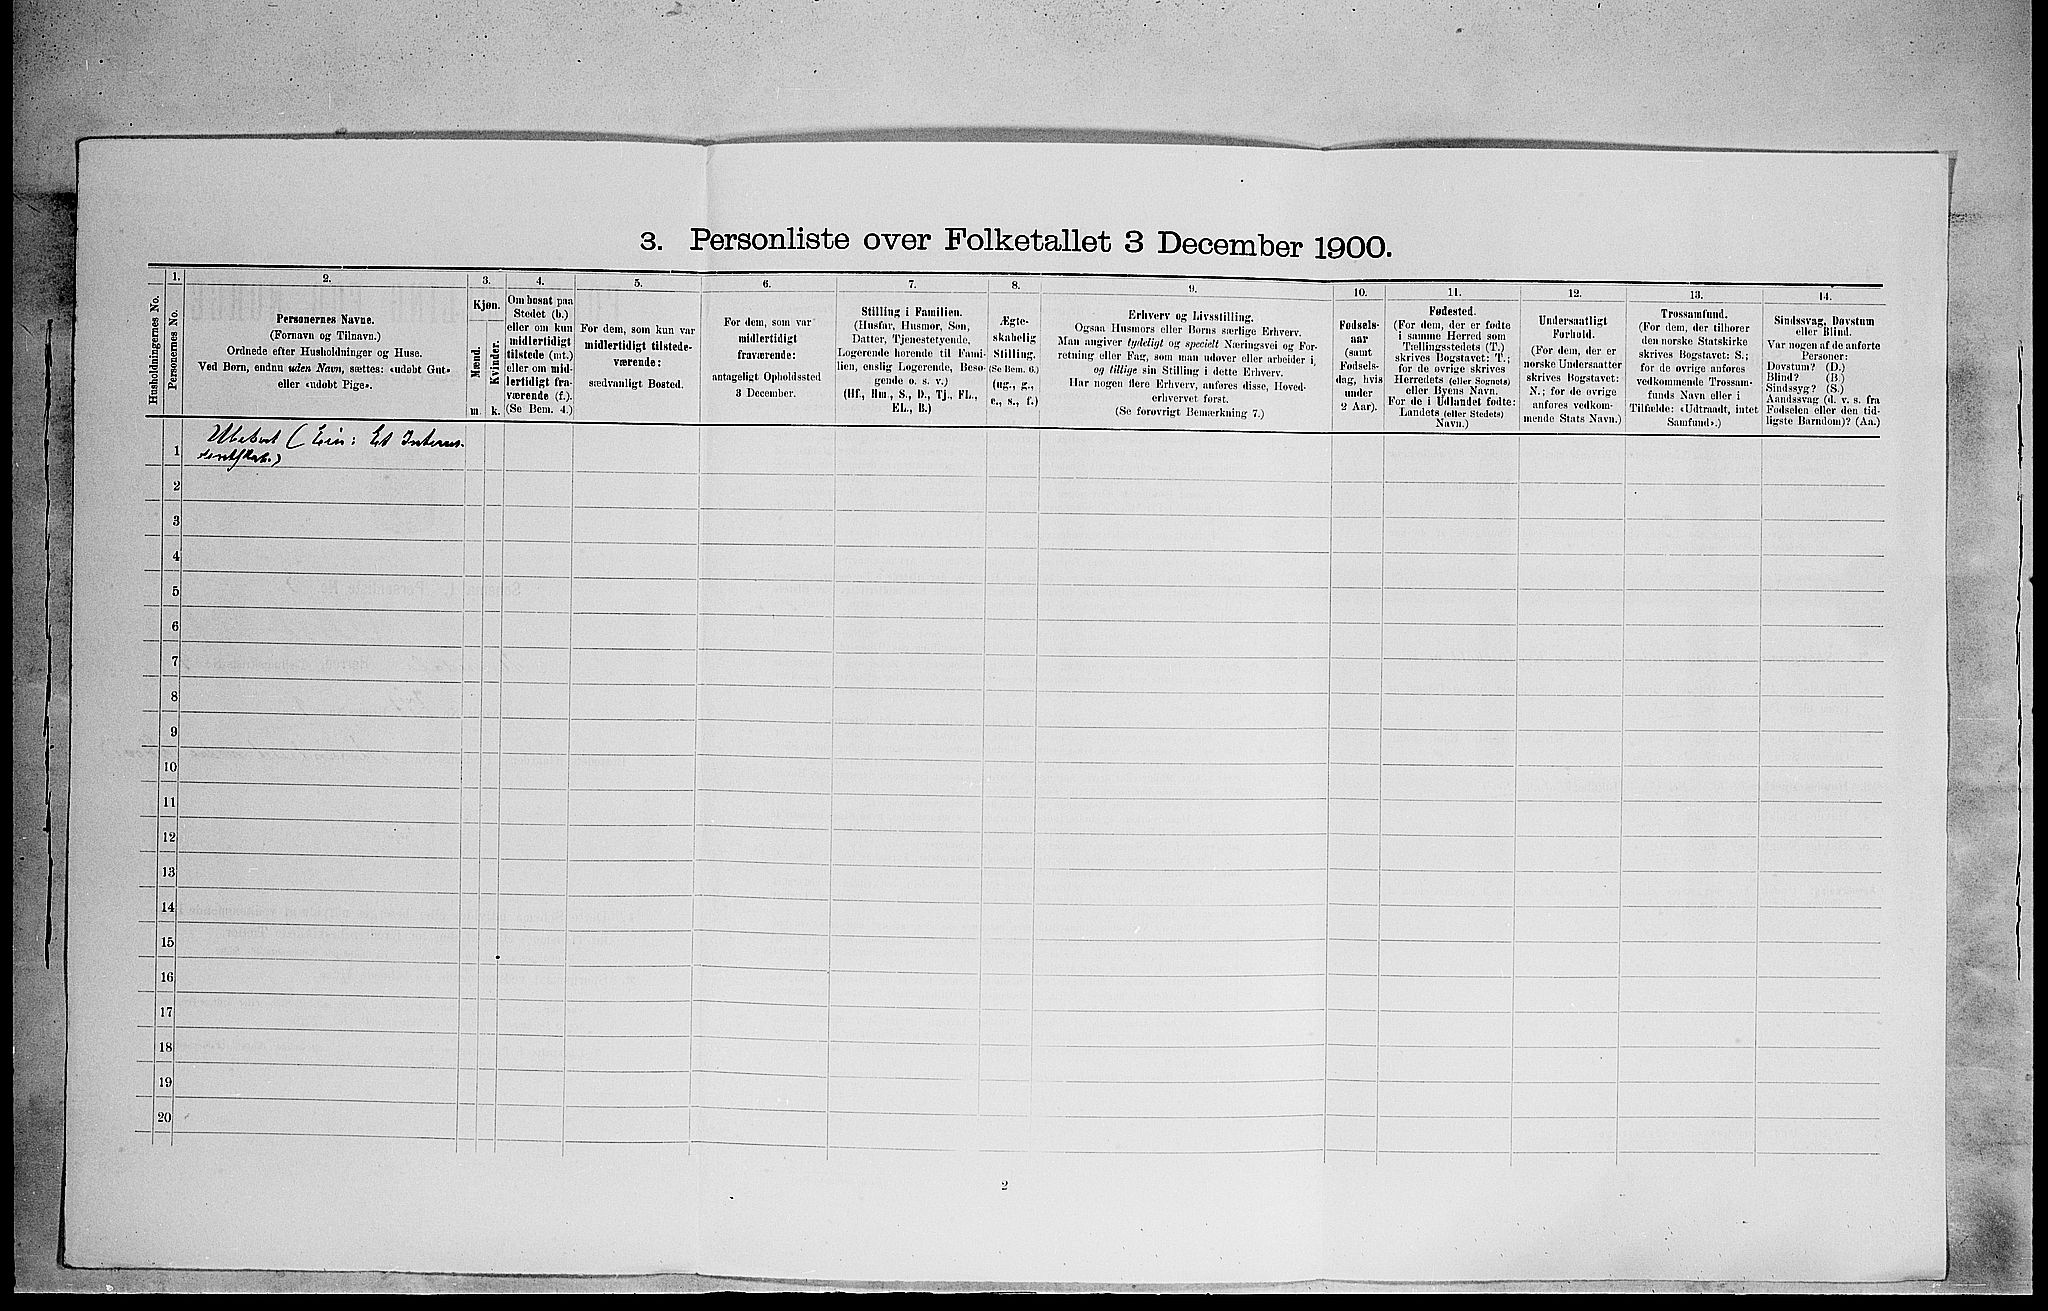 3. Personliste over Folketallet 3 December 1900.
Husholdningernes No.
1.
Personernes No.
2.
Personernes Navne.
(Fornavn og Tilnavn.)
Ordnede efter Husholdninger og Huse.
Ved Børn, endnu uden Navn, sættes: «udøbt Gut»
eller «udøbt Pige».
3.
Kjøn.
Mænd.
Kvinder.
m.
k.
4.
Om bosat paa
Stedet (b.)
eller om kun
midlertidigt
tilstede (mt.)
eller om mid-
lertidigt fra-
værende (f.).
(Se Bem. 4.)
5.
For dem, som kun var
midlertidigt tilstede-
værende:
sædvanligt Bosted.
6.
For dem, som var
midlertidigt
fraværende:
antageligt Opholdssted
3 December.
7.
Stilling i Familien.
(Husfar, Husmor, Søn,
Datter, Tjenestetyende,
Logerende hørende til Fami-
lien, enslig Logerende, Besø-
gende o. s. v.)
(Hf., Hm., S., D., Tj., FL.,
EL., B.)
8.
Ægte-
skabelig
Stilling.
(Se Bem. 6.)
(ug., g.,
e., s., f.)
9.
Erhverv og Livsstilling.
Ogsaa Husmors eller Børns særlige Erhverv.
Man angiver tydeligt og specielt Næringsvei og For-
retning eller Fag, som man udøver eller arbeider i,
og tillige sin Stilling i dette Erhverv.
Har nogen flere Erhverv, anføres disse, Hoved-
erhvervet først.
(Se forøvrigt Bemærkning 7.)
10.
Fødsels-
aar
(samt
Fødsels-
dag, hvis
under
2 Aar).
11.
Fødested.
(For dem, der er fødte
i samme Herred som
Tællingsstedets (T.)
skrives Bogstavet: T.;
for de øvrige skrives
Herredets (eller Sognets)
eller Byens Navn.
For de i Udlandet fødte:
Landets (eller Stedets)
Navn.)
12.
Undersaatligt
Forhold.
(For dem, der er
norske Undersaatter
skrives Bogstavet:
N.; for de øvrige
anføres vedkom-
mende Stats Navn.)
13.
Trossamfund.
(For dem, der tilhører
den norske Statskirke
skrives Bogstavet: S.;
for de øvrige anføres
vedkommende Trossam-
funds Navn eller i
Tilfælde: «Udtraadt, intet
Samfund».)
14.
Sindssvag, Døvstum
eller Blind.
Var nogen af de anførte
Personer:
Døvstum? (D.)
Blind? (B.)
Sindssyg? (S.)
Aandssvag (d. v. s. fra
Fødselen eller den tid-
ligste Barndom)? (Aa.)
1 Ubeboet (Eier: Et Interes-
sentskab.)
2
3
4
5
6
7
8
9
10
11
12
13
14
15
16
17
18
19
20
2